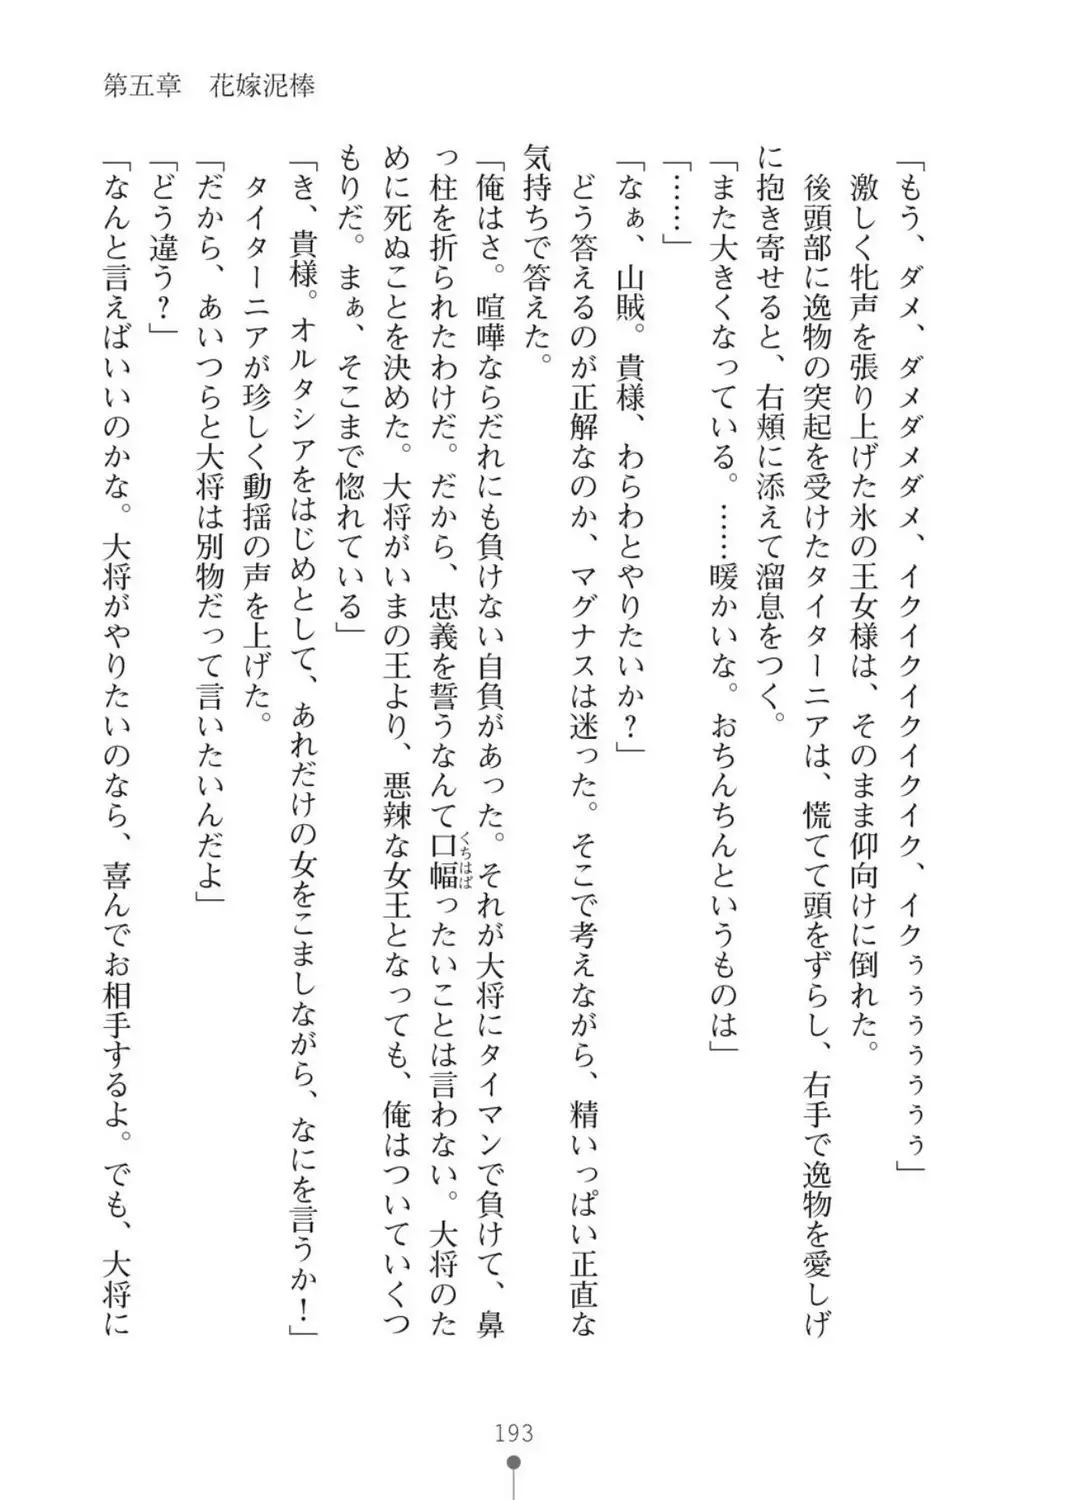 第五章　花嫁泥棒
「もう、ダメ、ダメダメダメ、イクイクイクイクイク、イクぅぅぅぅぅぅ」
　激しく牝声を張り上げた氷の王女様は、そのまま仰向けに倒れた。
　後頭部に逸物の突起を受けたタイターニアは、慌てて頭をずらし、右手で逸物を愛しげ
に抱き寄せると、右頬に添えて溜息をつく。
「また大きくなっている。……暖かいな。おちんちんというものは」
「……」
「なぁ、山賊。貴様、わらわとやりたいか？」
　どう答えるのが正解なのか、マグナスは迷った。そこで考えながら、精いっぱい正直な
気持ちで答えた。
「俺はさ。喧嘩ならだれにも負けない自負があった。それが大将にタイマンで負けて、鼻
っ柱を折られたわけだ。だから、忠義を誓うなんて口幅ったいことは言わない。大将のた
くちはば
めに死ぬことを決めた。大将がいまの王より、悪辣な女王となっても、俺はついていくつ
もりだ。まぁ、そこまで惚れている」
「き、貴様。オルタシアをはじめとして、あれだけの女をこましながら、なにを言うか！」
　タイターニアが珍しく動揺の声を上げた。
「だから、あいつらと大将は別物だって言いたいんだよ」
「どう違う？」
「なんと言えばいいのかな。大将がやりたいのなら、喜んでお相手するよ。でも、大将に
193